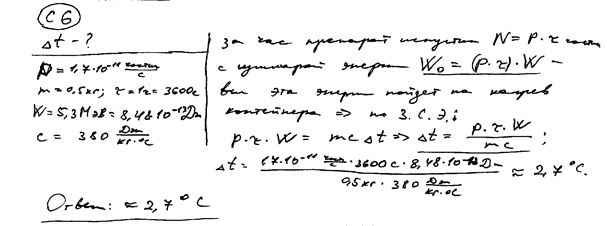 С6
Δt - ?
P = 1,7·10⁻¹¹ частиц/с
m = 0,5кг; τ = 1ч = 3600с
W = 5,3 МэВ = 8,48·10⁻¹³Дж
c = 380 Дж/кг·°С
За час препарат испустит N = P·τ частиц
с суммарной энергии W₀ = (P·τ)·W –
вся эта энергия пойдет на нагрев
контейнера ⇒ по З.С.Э.:
P·τ·W = mcΔt ⇒ Δt = P·τ·W/mc ;
Δt = 1,7·10⁻¹¹ част/с · 3600с · 8,48·10⁻¹³Дж / 0,5кг · 380 Дж/кг·°С ≈ 2,7 °С.
Ответ: ≈ 2,7 °С